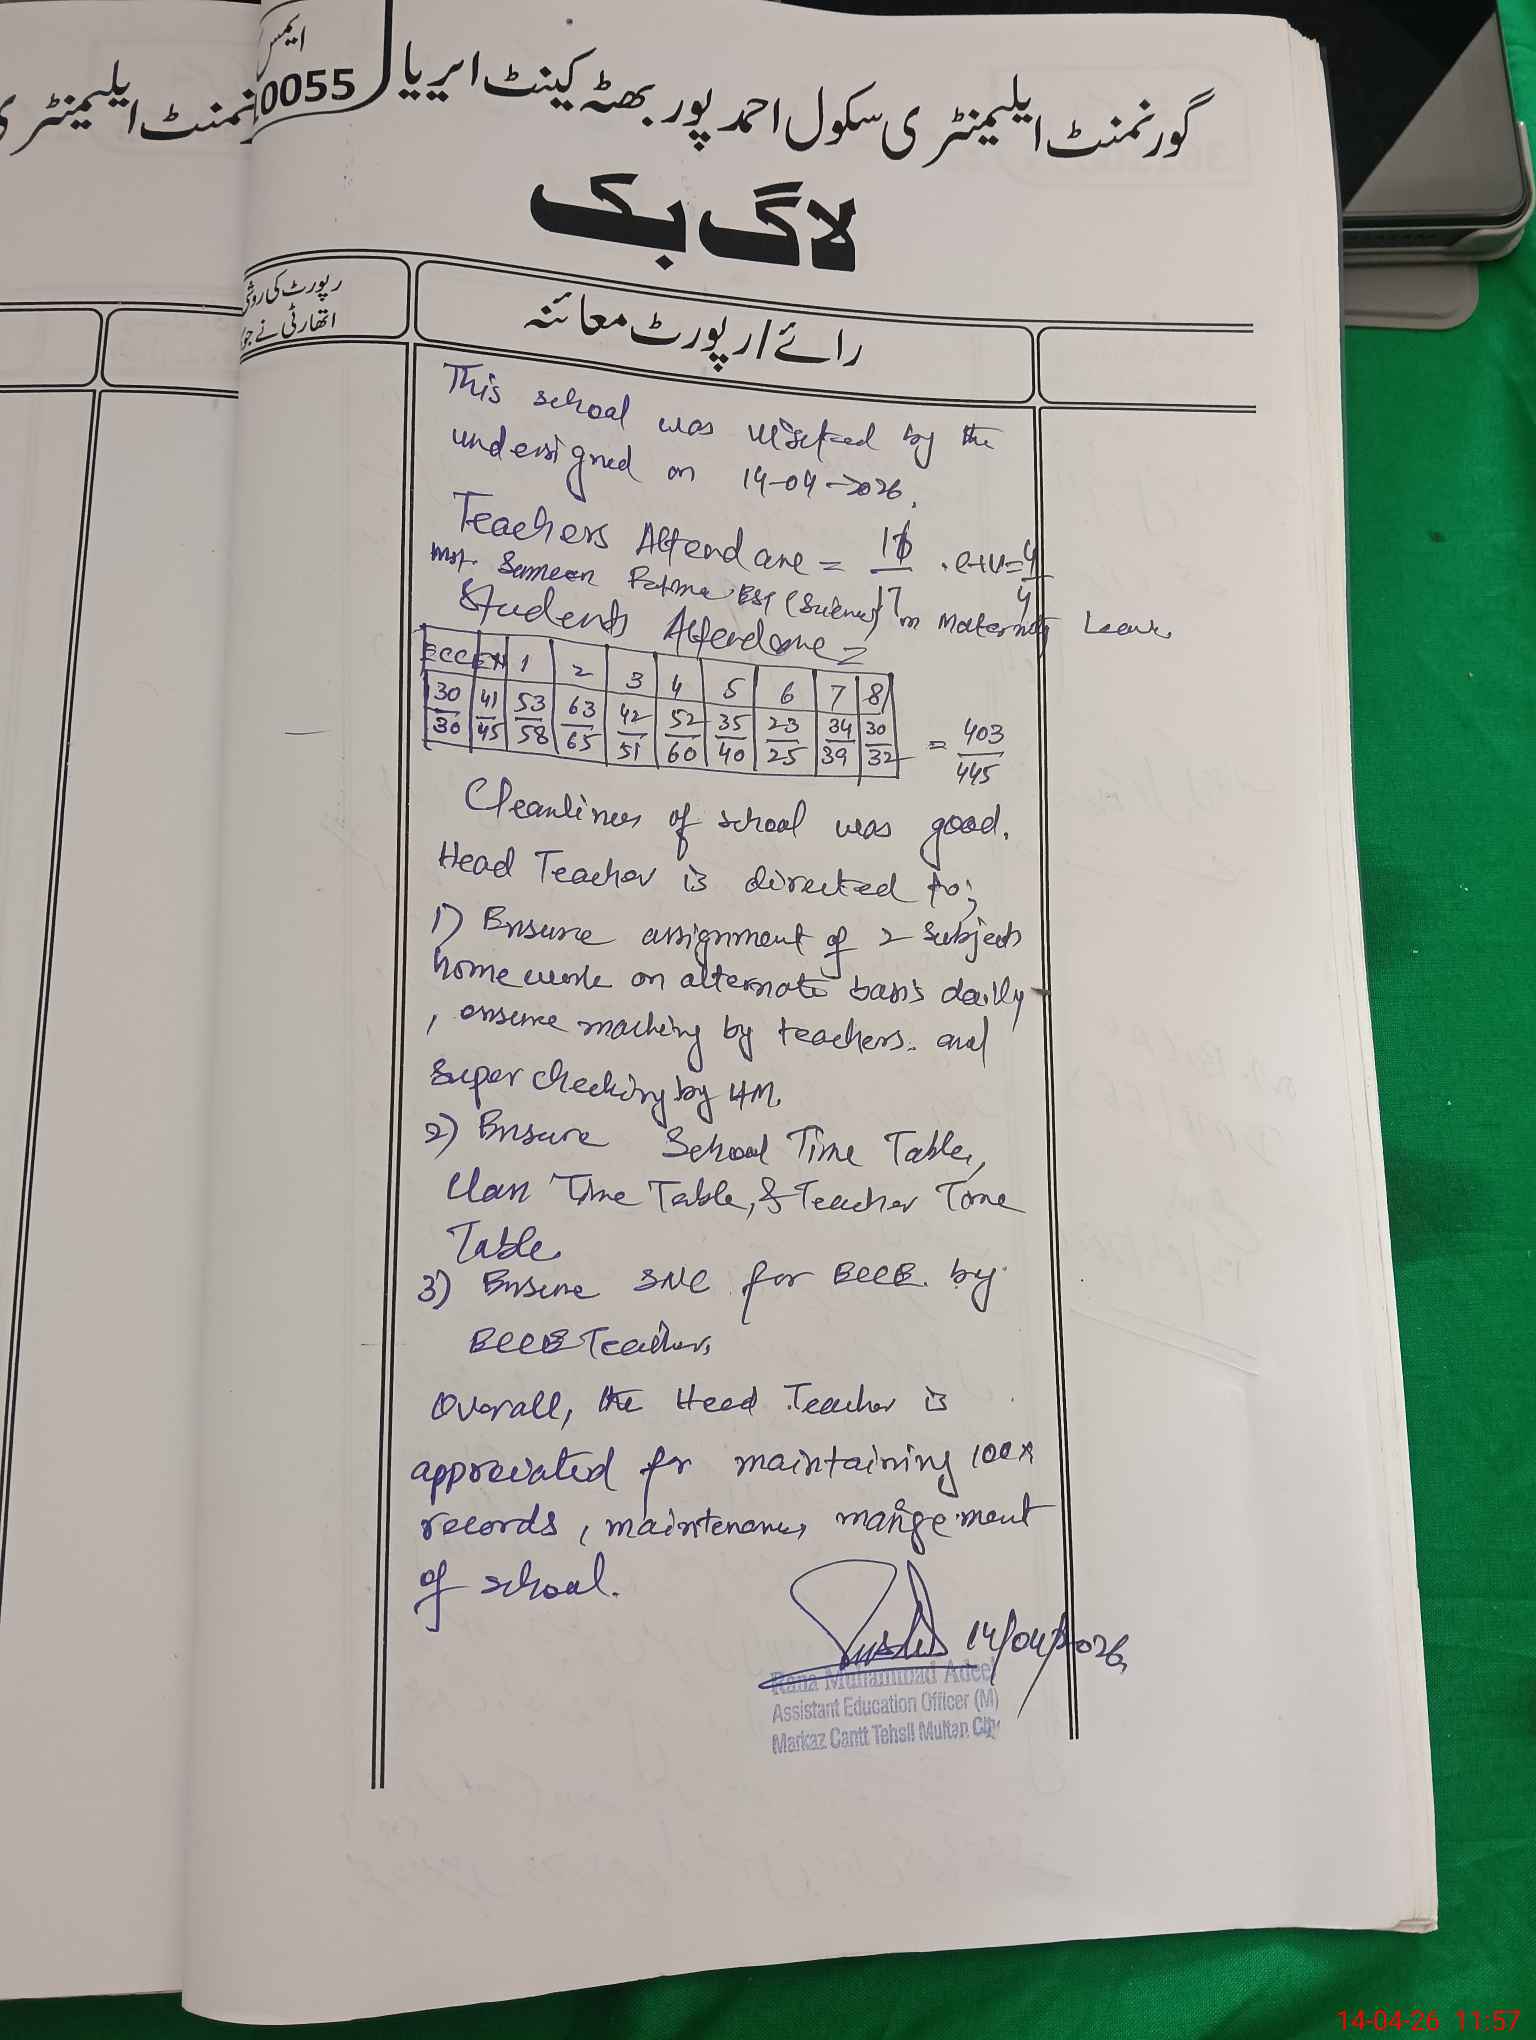 ایمس
0055
گورنمنٹ ایلیمنٹری سکول احمد پور بھٹہ کینٹ ایریا
نمنٹ ایلیمنٹری
لاگ بک
رپورٹ کی روشنی
اتھارٹی نے جو
رائے/رپورٹ معائنہ
This school was visited by the
undersigned on 14-04-2026.
Teachers Attendance = 16/17 . C-IV = 4/4
Mst. Sameen Fatima EST (Science) on Maternity Leave
Students Attendance =
ECCE KH 1 2 3 4 5 6 7 8
30/30 41/45 53/58 63/65 42/51 52/60 35/40 23/25 34/39 30/32 = 403/445
Cleanliness of school was good.
Head Teacher is directed to;
1) Ensure assignment of 2 subjects
home work on alternate basis daily
, ensure marking by teachers. and
super checking by HM.
2) Ensure School Time Table,
Class Time Table, & Teacher Time
Table.
3) Ensure SNC for ECCE. by
ECCE Teachers
Overall, the Head Teacher is
appreciated for maintaining 100%
records, maintenance, mangement
of school.
14/04/2026
Rana Muhammad Adeel
Assistant Education Officer (M)
Markaz Cantt Tehsil Multan City
14-04-26 11:57